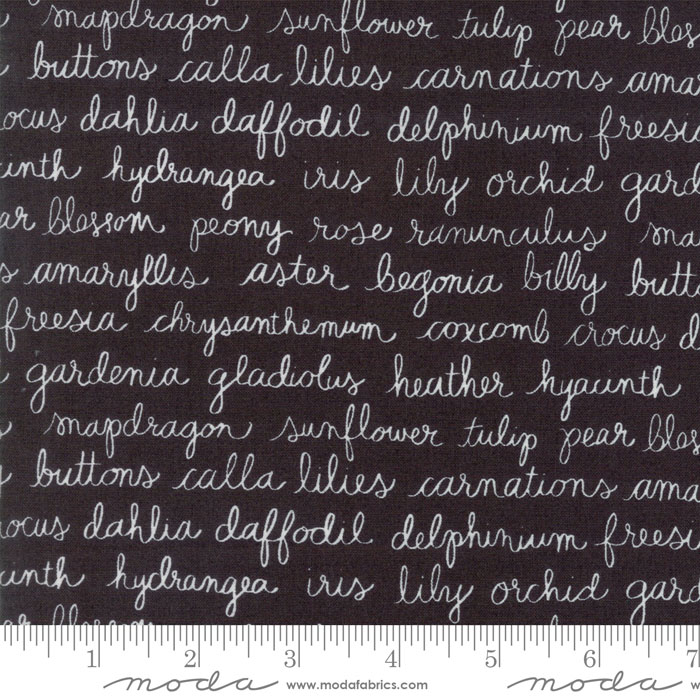 snapdragon sunflower tulip pear blos
buttons calla lilies carnations ama
ocus dahlia daffodil delphinium freesia
inth hydrangea iris lily orchid gard
ar blossom peony rose ranunculus sna
s amaryllis aster begonia billy butt
freesia chrysanthemum coxcomb crocus d
gardenia gladiolus heather hyacinth
snapdragon sunflower tulip pear blos
buttons calla lilies carnations ama
ocus dahlia daffodil delphinium freesi
inth hydrangea iris lily orchid gard
1 2 3 4 5 6 7
moda www.modafabrics.com moda w